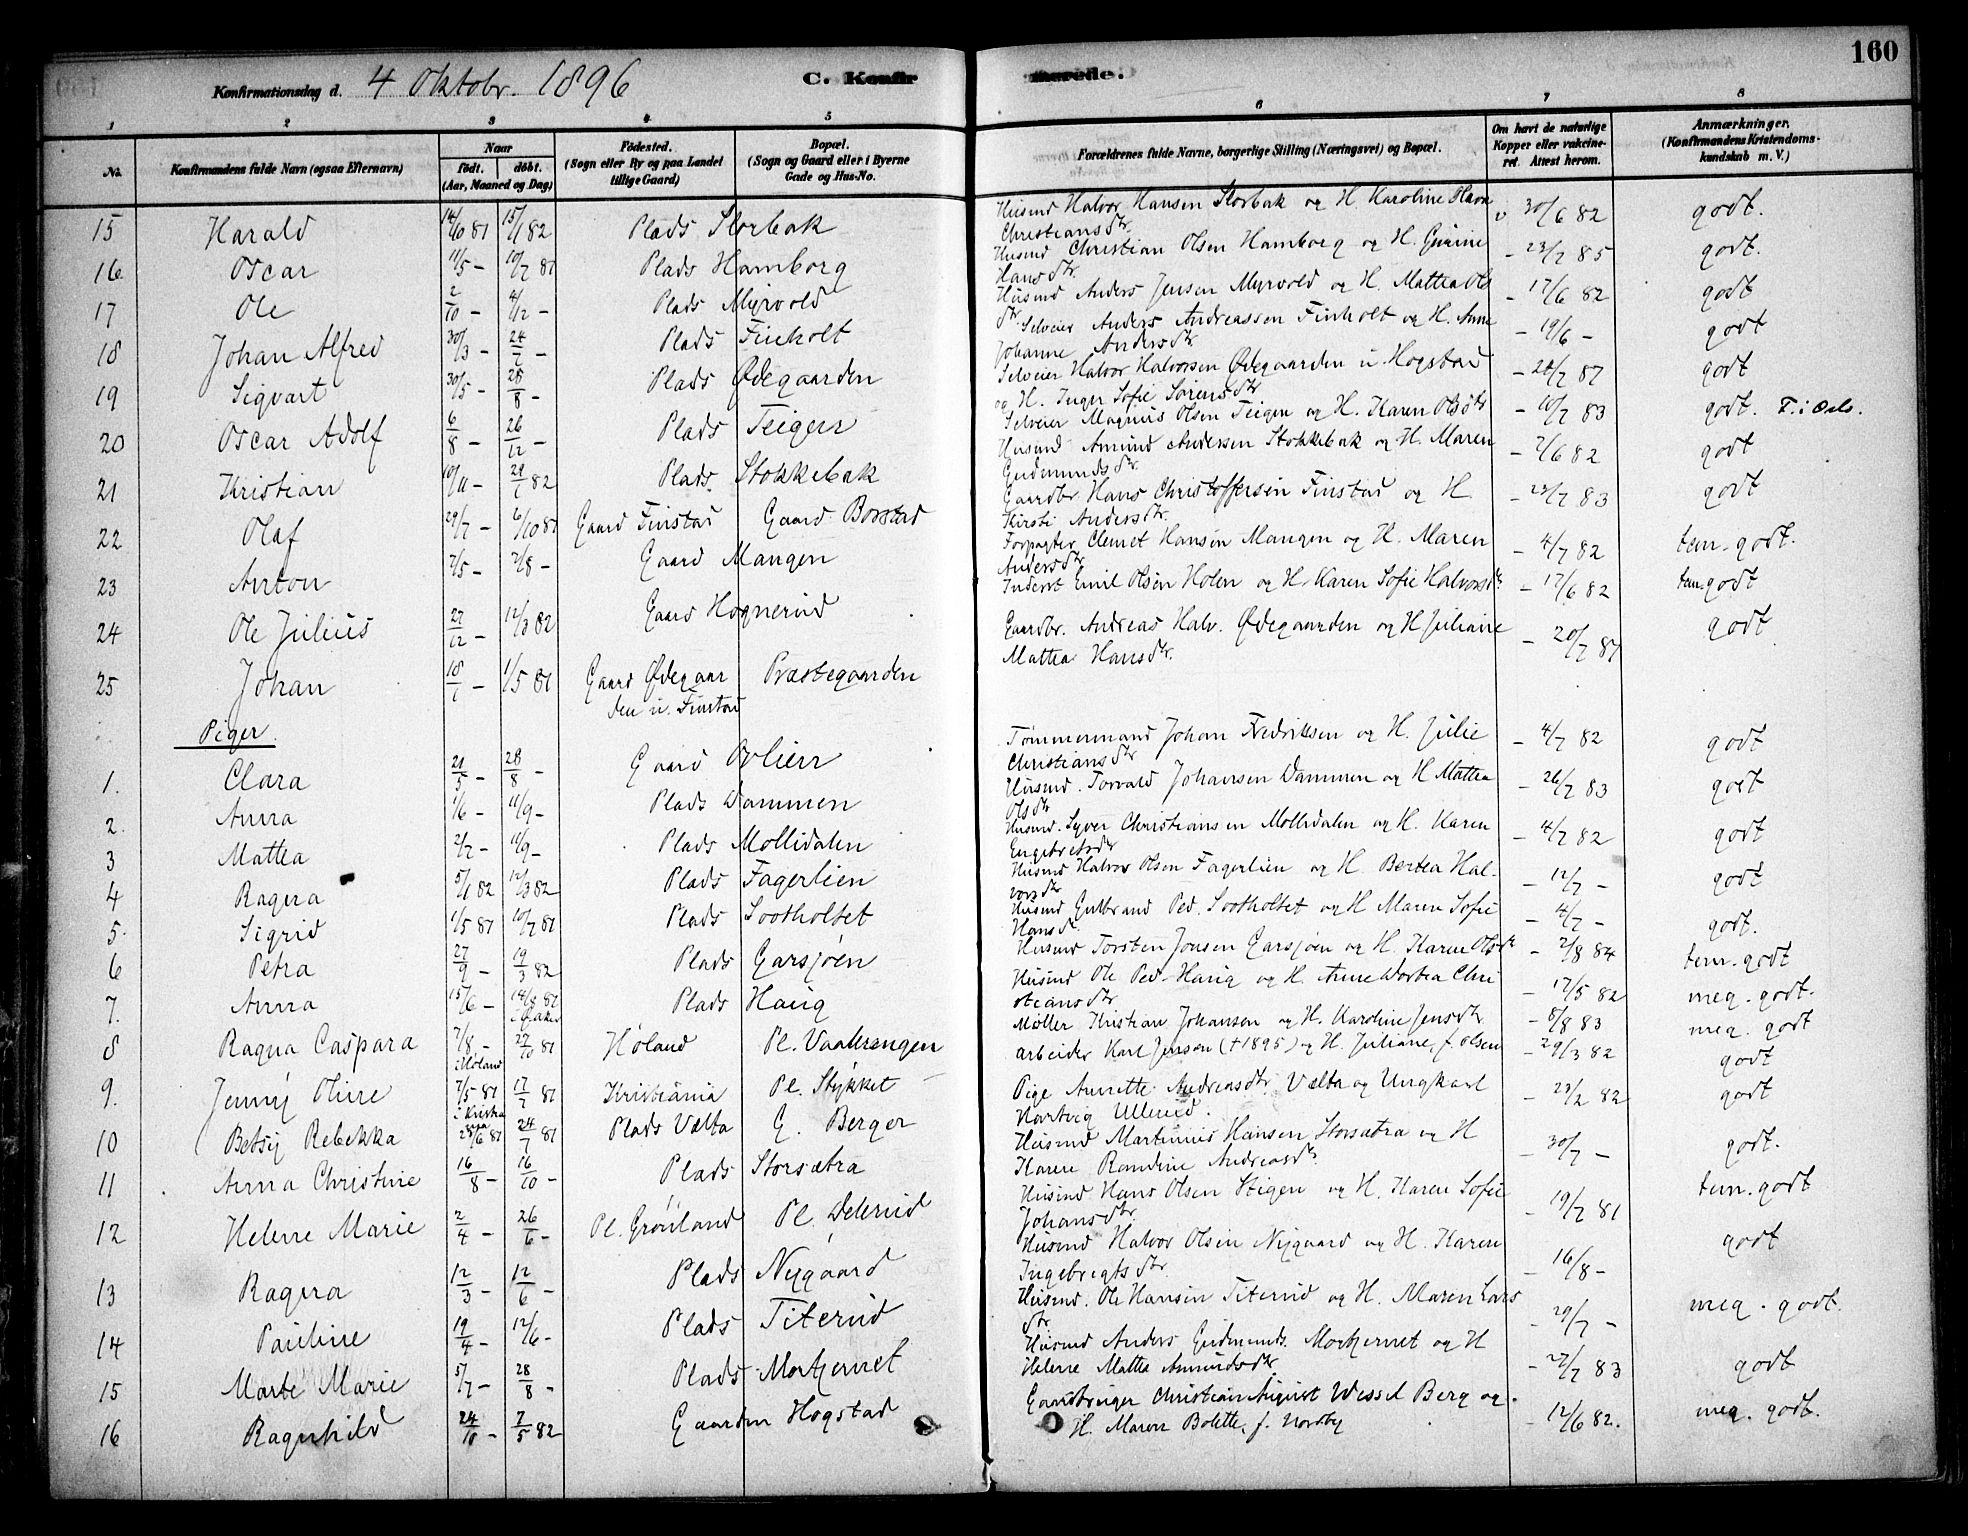 160
Konfirmationsdag d. 4 Oktobr. 1896 C. Konfirmerede.
1 2 3 4 5 6 7 8
No. Konfirmandens fulde Navn (ogsaa Efternavn) Naar født. døbt. (Aar, Maaned og Dag) Fødested. (Sogn eller By og paa Landet tillige Gaard) Bopæl. (Sogn og Gaard eller i Byerne Gade og Hus-No. Forældrenes fulde Navne, borgerlige Stilling (Næringsvei) og Bopæl. Om havt de naturlige Kopper eller vakcineret. Attest herom. Anmærkninger. (Konfirmandens Kristendomskundskab m. V.)
15 Harald 14/10 81 15/1 82 Plads Storbak Husmd Halvor Hansen Storbak og H. Karoline Christiansdtr. 30/6 82 godt.
16 Oscar 11/5 - 10/7 81 Plads Hamborg Husmd Christian Olsen Hamborg og H. Gunine Hansdtr. - 23/7 85 godt.
17 Ole 2/10 - 4/12 - Plads Myrvold Husmd Anders Jensen Myrvold og H. Mattea Olsdtr. - 17/6 82 godt
18 Johan Alfred 30/3 - 24/7 - Plads Finholt Selveier Anders Andreassen Finholt og H. Anne Johanne Andersdtr. - 19/6 - godt
19 Sigvart 30/5 - 28/8 - Plads Ødegaarden Selveier Halvor Halvorsen Ødegaarden u. Hogstad og H. Inger Sofie Sørensdtr - 28/7 87 godt
20 Oscar Adolf 6/8 - 26/12 - Plads Teigen Selveier Magnus Olsen Teigen og H. Karen Olsdtr - 10/7 83 godt. F. i Oslo.
21 Kristian 10/11 - 29/1 82 Plads Stokkebak Husmd Amund Andersen Stokkebak og H. Maren Gudmundsdtr. - 7/6 82 godt
22 Olaf 29/7 - 6/10 81 Gaard Finstad Gaard Borstad Gaardbr Hans Christoffersen Finstad og H Kirsti Andersdtr. - 23/7 83 godt
23 Anton 7/5 - 7/8 - Gaard Mangen Forpagter Clemet Hansen Mangen og H. Maren Andersdtr - 4/7 82 tem. godt.
24 Ole Julius 27/12 - 12/3 82 Gaard Hognerud Inderst Emil Olsen Holen og H. Karen Sofie Halvorsdtr - 17/6 82 tem. godt
25 Johan 18/1 - 1/5 81 Gaard Ødegaarden u. Finstad Præstegaarden Gaardbr. Andreas Halv. Ødegaarden og H Juliane Mattea Hansdtr. - 20/7 87 godt
Piger.
1. Clara 21/5 - 28/8 - Gaard Ovlien Tømmermand Johan Fredriksen og H. Julie Christiansdtr - 4/7 82 godt
2. Anna 1/6 - 11/9 - Plads Dammen Husmd. Torvald Johansen Dammen og H Mattea Olsdtr - 26/7 83 godt
3 Mattea 2/7 - 11/9 - Plads Mollidalen Husmd. Syver Christiansen Mollidalen og H. Karen Engebretsdtr - 4/7 82 godt
4 Ragna 5/1 82 12/3 82 Plads Fagerlien Husmd Halvor Olsen Fagerlien og H Bertea Halvorsdtr - 12/7 - godt
5. Sigrid 1/5 81 10/7 81 Plads Sootholtet Husmd Gulbrand Ped. Sootholtet og H Maren Sofie Hansd. - 4/7 - godt.
6 Petra 27/9 - 19/3 82 Plads Garsjøen Husmd Torsten Jonsen Garsjøen og H. Karen Olsdtr - 2/8 84 tem. godt
7. Anna 15/6 - 14/8 81 Plads Haug Husmd Ole Ped. Haug og H. Anne Dortea Christiansdtr - 17/5 82 meg. godt.
8 Ragna Caspara 7/8 - i Høland 27/10 81 Høland Pl. Vaahrengen Møller Kristian Johansen og H. Karoline Jensdtr. - 8/8 83 meg. godt
9. Jenny Oline 7/5 81 i Kristiania 17/7 81 Kristiania Pl. Stykket arbeider Karl Jensen (+1895) og H. Juliane, f. Olsen - 29/3 82 godt
10 Betsy Rebekka 28/6 81 24/7 81 Plads Vælta G. Berger Pige Annette Andreasdtr. Vælta og Ungkarl Hartvig Ullerud. - 23/2 82 godt
11 Anna Christine 16/8 - 16/10 - Plads Storsætra Husmd Martinius Hansen Storsætra og H Karen Randine Andreasdtr. - 30/7 - godt.
12 Helene Marie 2/4 - 26/6 - Pl. Grønland Pl. Delerud Husmd Hans Olsen Stigen og H. Karen Sofie Johansdtr. - 19/7 81 tem. godt
13 Ragna 12/3 - 12/6 - Plads Nygaard Husmd Halvor Olsen Nygaard og H. Karen Ingebrigtsdtr. - 16/8 - godt
14 Pauline 19/4 - 12/6 - Plads Titerud Husmd. Ole Hansen Titerud og H. Maren Larsdtr. - 29/7 - meg. godt.
15 Marte Marie 5/7 - 28/8 - Plads Mortjernet Husmd Anders Gudmunds. Mortjernet og H Helene Mattea Amundsdtr - 27/7 83 godt
16 Ragnhild 24/10 - 7/5 82 Gaarden Hogstad Gaardbruger Christian August Wessel Berg og H. Maren Bolette, f. Nordby - 12/6 82. meg. godt.